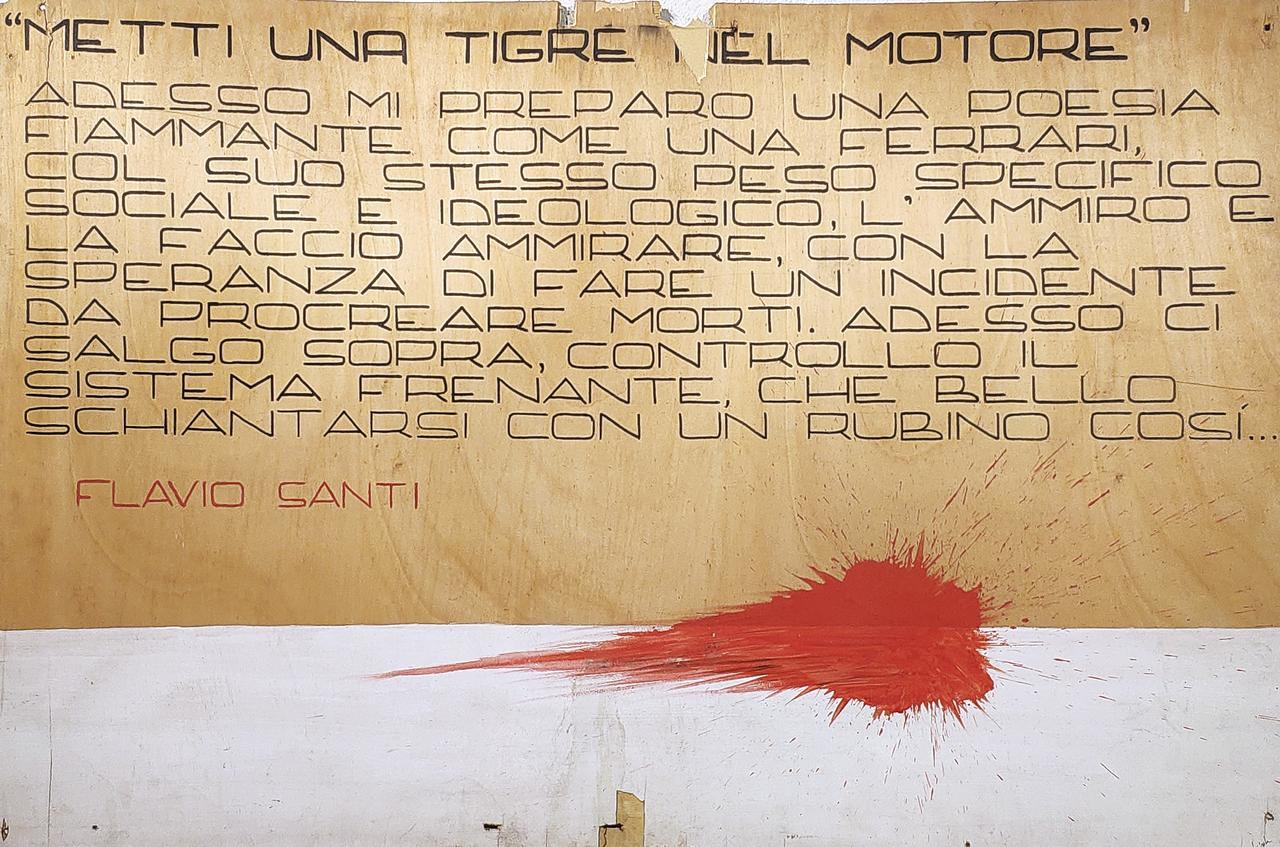 “METTI UNA TIGRE NEL MOTORE”
ADESSO MI PREPARO UNA POESIA
FIAMMANTE COME UNA FERRARI,
COL SUO STESSO PESO SPECIFICO
SOCIALE E IDEOLOGICO, L' AMMIRO E
LA FACCIO AMMIRARE, CON LA
SPERANZA DI FARE UN INCIDENTE
DA PROCREARE MORTI. ADESSO CI
SALGO SOPRA, CONTROLLO IL
SISTEMA FRENANTE, CHE BELLO
SCHIANTARSI CON UN RUBINO COSÍ...
FLAVIO SANTI